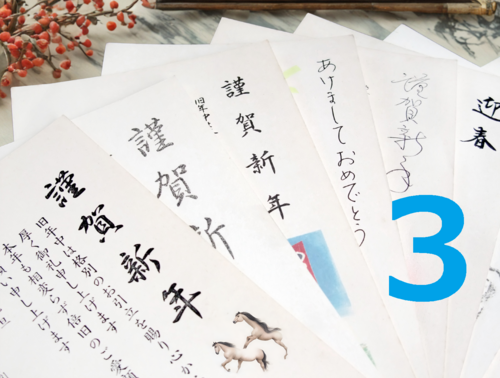 謹賀新年
旧年中は格別のお引立を賜り心か
厚く御礼申し上げます
本年も相変らず倍旧のご愛顧
謹賀新
謹賀新年
旧年中
あけましておめでとう
謹賀新年
迎春
3